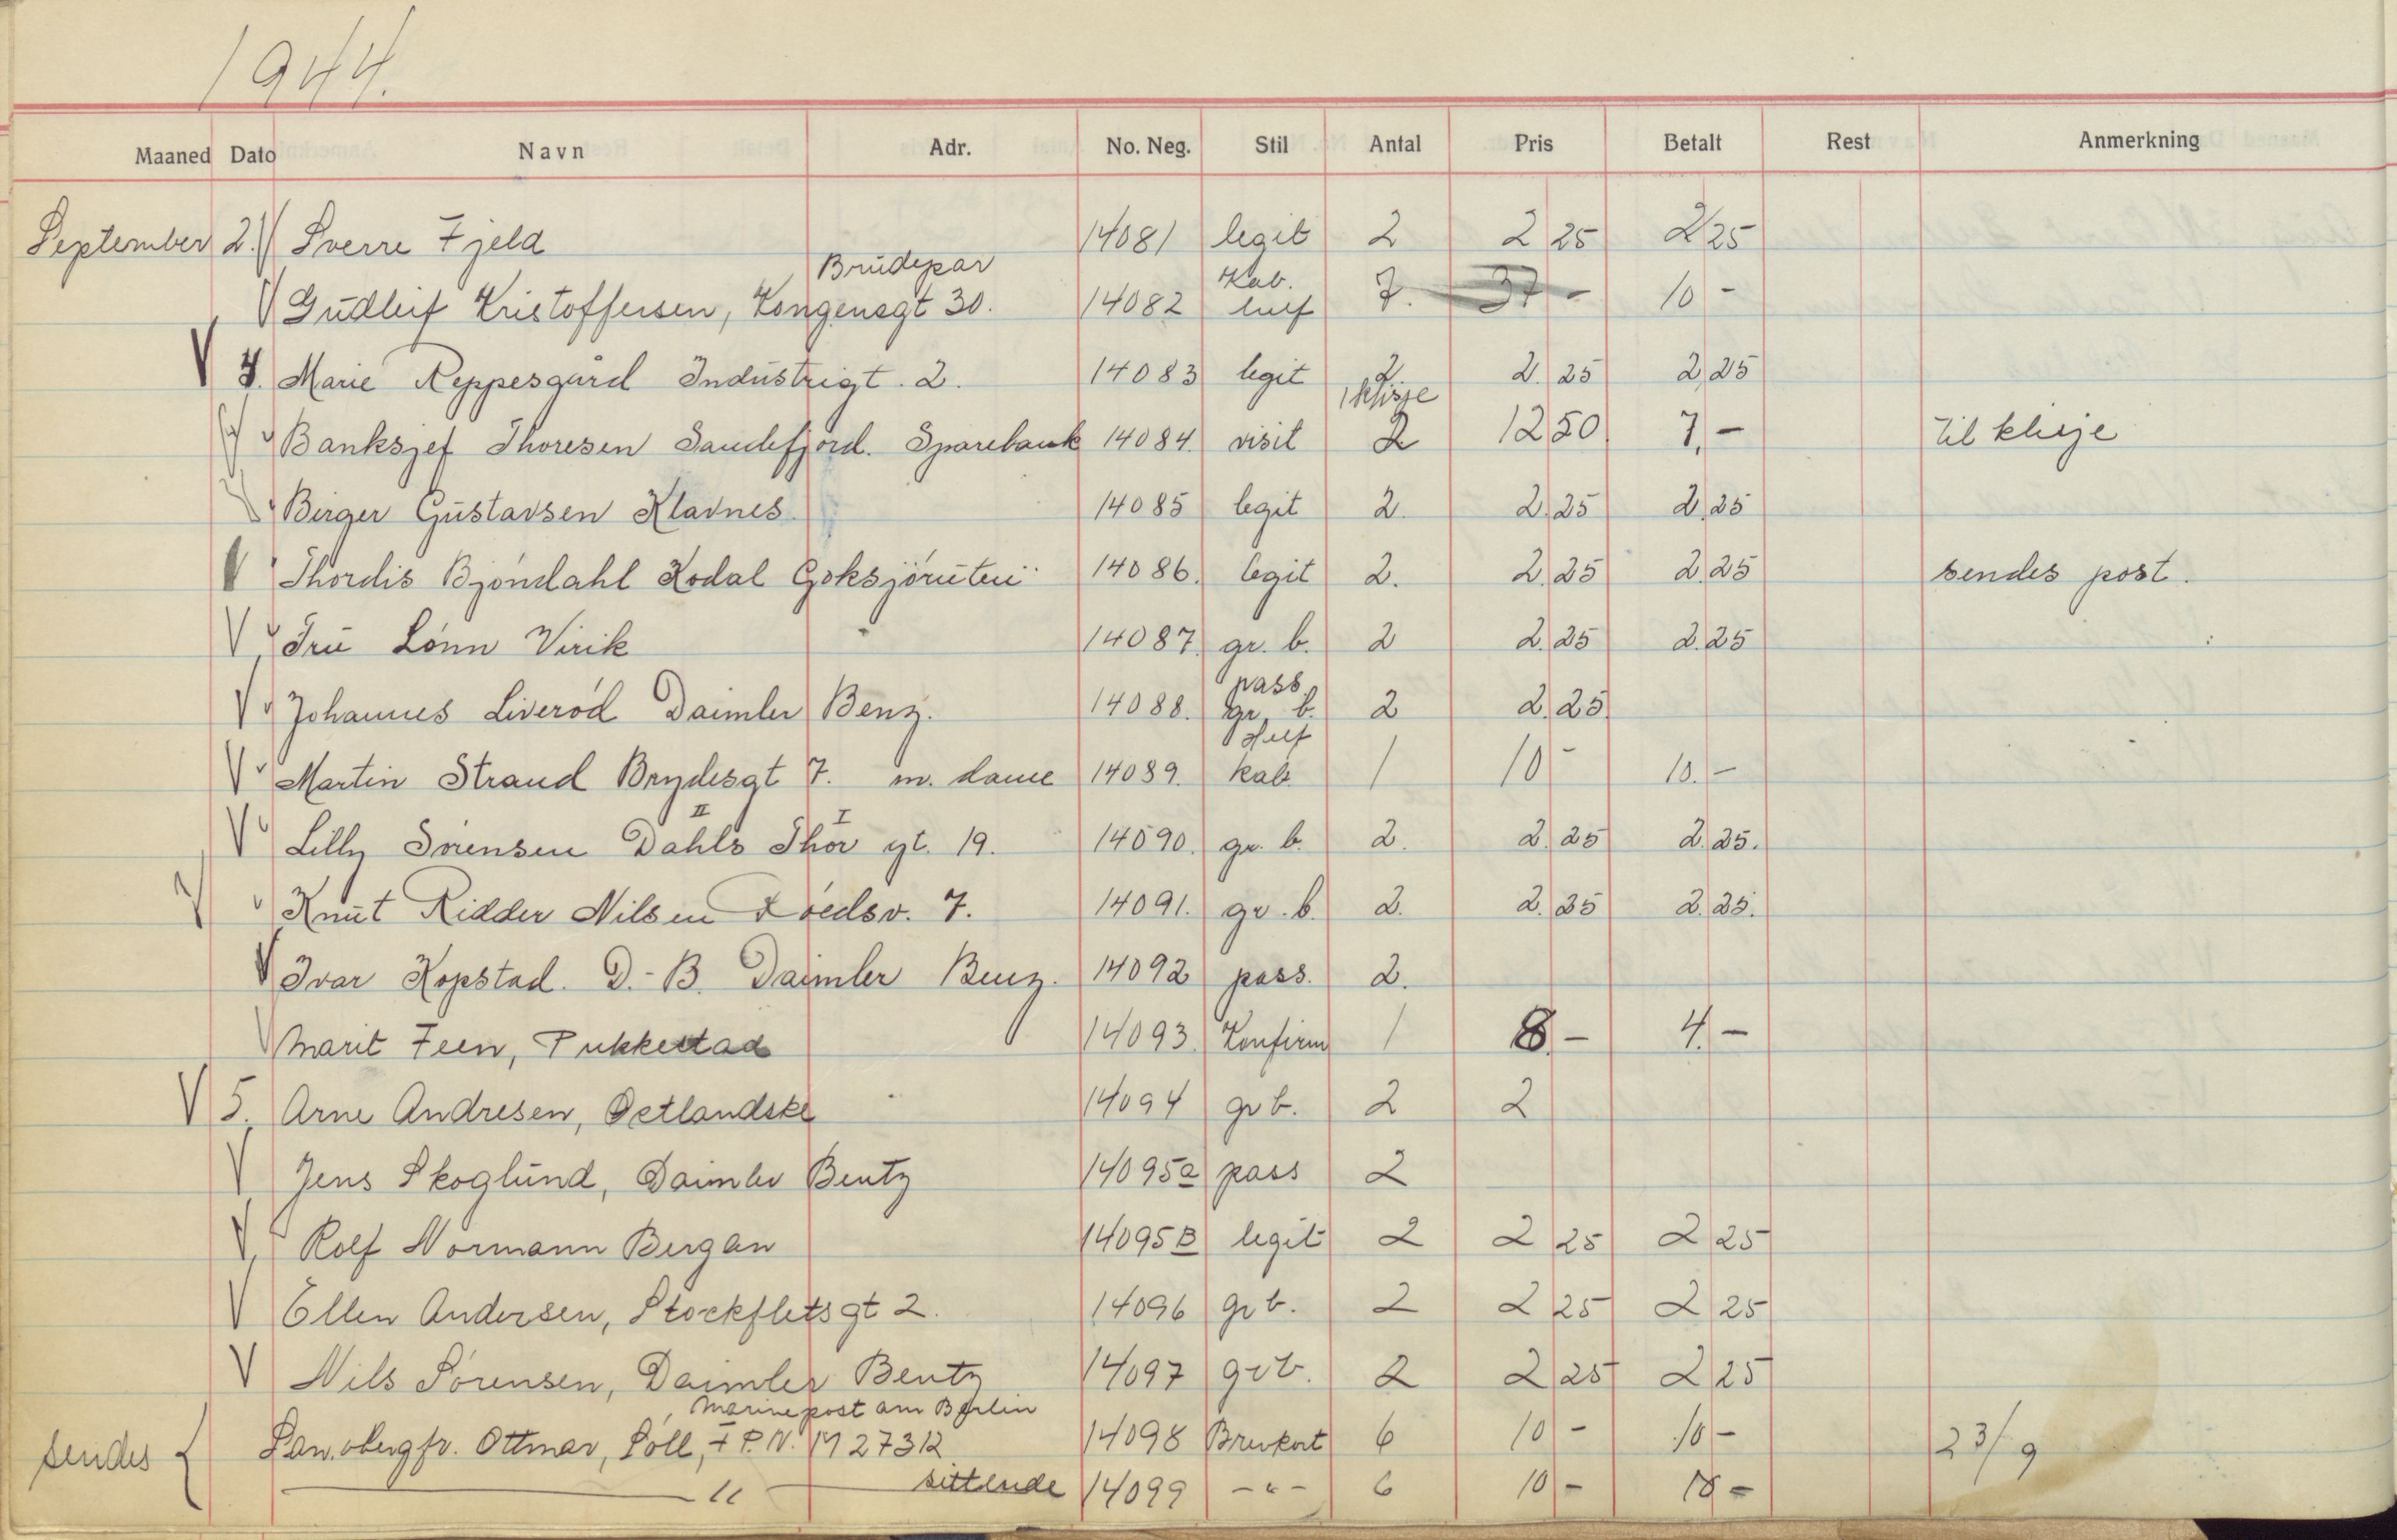 1944.
Maaned Dato Navn Adr. No. Neg. Stil Antal Pris Betalt Rest Anmerkning
September 2. Sverre Fjeld 14081 legit 2 2 25 2 25
Brudepar Kab.
Gudleif Kristoffersen, Kongensgt 30. 14082 7. 37 - 10 -
4. Marie Reppesgård Industrigt. 2. 14083 legit 2 2. 25 2,25
1 klisje
Banksjef Thoresen Sandefjord. Sparebank 14084. visit 2 12 50 7,- til klisje
Birger Gustavsen Klavnes. 14085 legit 2. 2.25 2.25
Thordis Bjöndahl Kodal Goksjöruten 14086. legit 2. 2.25 2.25 sendes post.
Fru Lönn Virik 14087. gr. b. 2 2.25 2.25
pass
Johannes Liveröd Daimler Benz. 14088. gr. b. 2 2.25
Martin Strand Brydesgt 7. m. dame 14089. kab. 1 10 - 10.-
II I
Lilly Sörensen Dahls Thor gt. 19. 14090. gr. b. 2. 2.25 2.25.
Knut Ridder Nilsen 7. 14091. gr. b. 2. 2.25 2.25.
Ivar Kopstad. D.-B. Daimler Benz. 14092 pass. 2.
Marit Feen, Pukkestad 14093. Konfirm 1 8.- 4.-
5. Arne Andresen, Östlandske 14094 gr b. 2 2
Jens Skoglund, Daimler Bentz 14095a pass 2
Rolf Normann Bergan 14095B legit 2 2 25 2 25
Ellen Andersen, Stockfletsgt 2. 14096 gr b. 2 2 25 2 25
Nils Sörensen, Daimler Bentz 14097 gr b. 2 2 25 2 25
Marinepost am Berlin
sendes { Ottmar, Söll, F.P.N. M 27312 14098 Brevkort 6 10 - 10 - 23/9
— " — sittende 14099 - " - 6 10 - 10 -